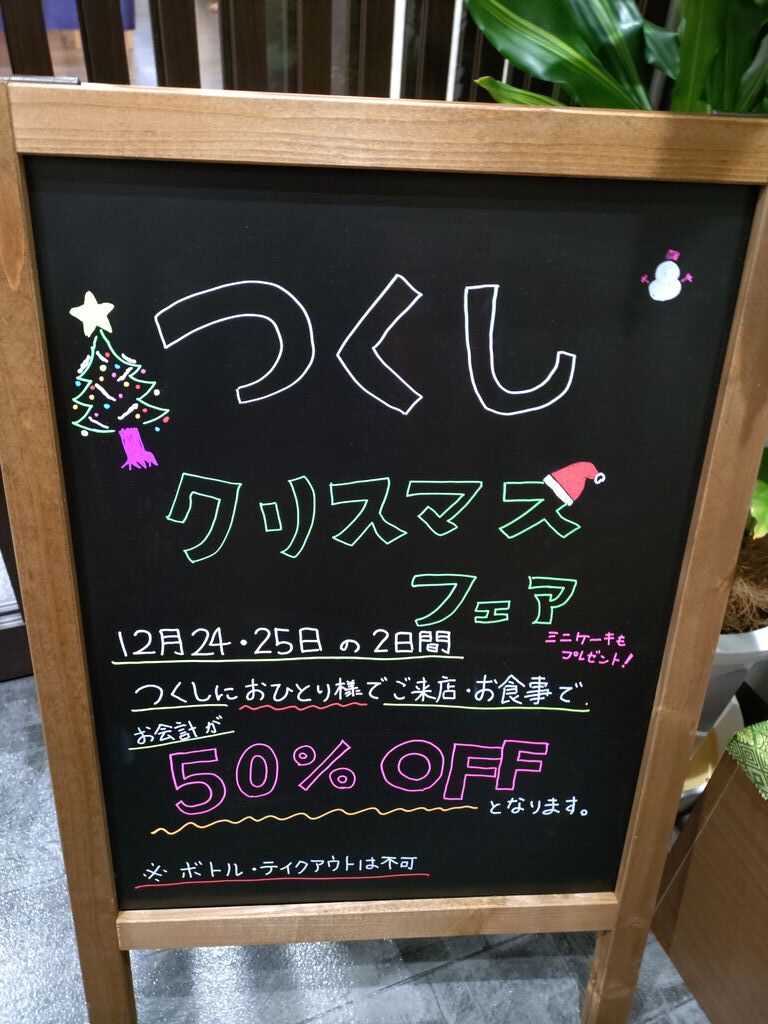 つくし
クリスマス
フェア
12月24・25日の2日間
ミニケーキも
プレゼント!
つくしにおひとり様でご来店・お食事で
お会計が
50% OFF
となります。
※ ボトル・テイクアウトは不可